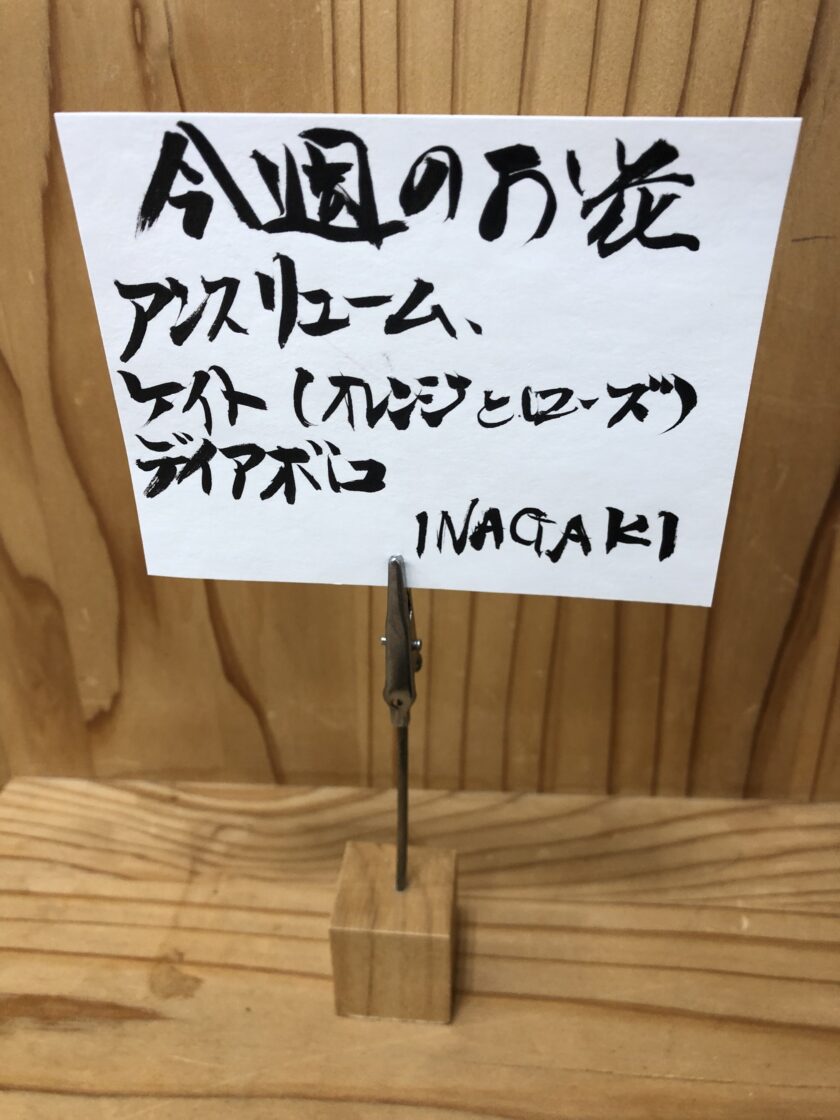 今週のお花
アンスリューム、
ケイト（オレンジとローズ）
デイアボロ
INAGAKI